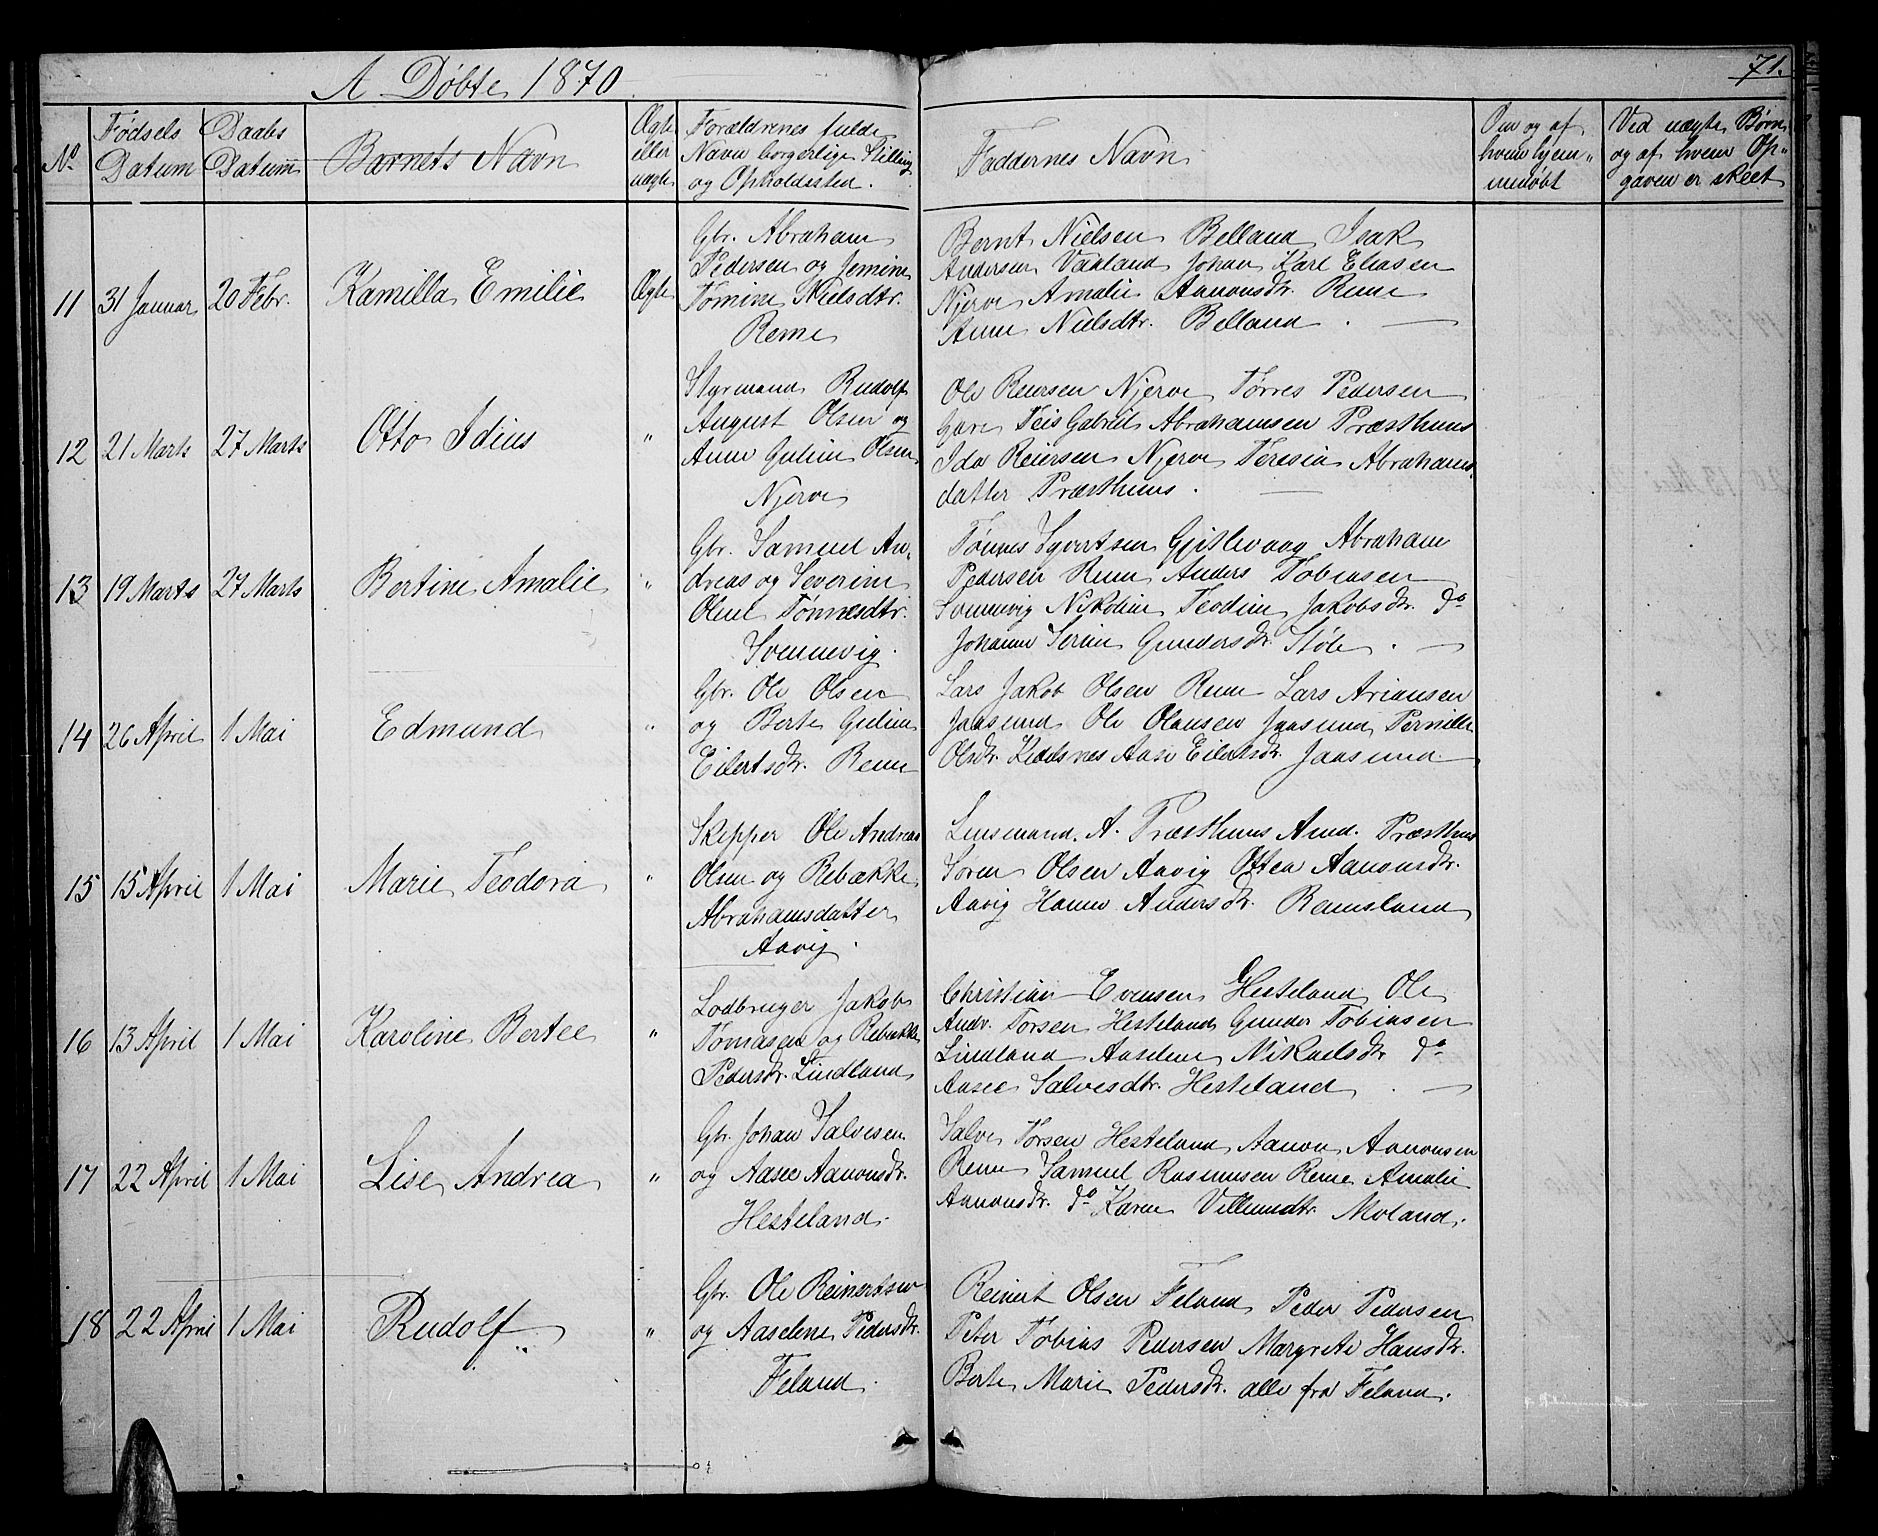 A Døbte 1870
71.
No
Fødsels Datum
Daabs Datum
Barnets Navn
Ægte eller uægte
Forældrenes fulde Navn borgerlige Stilling og Opholdssted.
Faddernes Navn
Om og af hvem hjemmedøbt
Ved uægte Børn og af hvem Opgaven er skeet
11 31 Januar 20 Febr. Kamilla Emilie Ægte
Gbr. Abraham
Pedersen og Jemine
Tomine Nielsdtr.
Reme
Bernt Nielsen Belland Isak
Andersen Vaaland Johan Karl Eliasen
Njerve Amalie Aanonsdr. Reme
Anne Nielsdtr. Belland.
12 21 Marts 27 Marts Otto Idius "
Styrmand Rudolf
August Olsen og
Anne Guline Olsen
Njerve
Ole Reiersen Njerve Tørres Pedersen
Gare Teis Gabriel Abrahamsen Præsthuus
Ida Reiersen Njerve Teresia Abrahams
datter Præsthuus.
13 19 Marts 27 Marts Bertine Amalie "
Gbr. Samuel An-
dreas og Severine
Oline Tønnesdtr.
Svennevig.
Tønnes Syvertsen Gjislevaag Abraham
Pedersen Reme Anders Tobiasen
Svennevig Nikoline Teodine Jakobsdr. do
Johanne Serine Gundersdr. Støle.
14 26 April 1 Mai Edmund "
Gbr. Ole Olsen
og Berte Guline
Eilertsdr. Reme
Lars Jakob Olsen Reme Lars Ariansen
Jaasund Ole Olausen Jaasund Pernille
Olsdr. Aase Eilertsdr. Jaasund.
15 15 April 1 Mai Marie Teodora "
Skipper Ole Andreas
Olsen og Rebække
Abrahamsdatter
Aavig.
Lensmand. A. Præsthuus Amd. Præsthuus
Søren Olsen Aavig Ottea Aanonsdr.
Aavig Hanne Andersdr. Ramsland
16 13 April 1 Mai Karoline Bertee "
Lodbruger Jakob
Tomasen og Rebække
Pedersdr. Lindland
Christian Evensen Hesteland Ole
Andr. Torsen Hesteland Gunder Tobiasen
Lindland Aaselene Mikaelsdr. do
Aasee Salvesdtr. Hesteland.
17 22 April 1 Mai Lise Andrea "
Gbr. Johan Salvesen
og Aasee Aanonsdr.
Hesteland.
Salve Torsen Hesteland Aanon Aanonsen
Reme Samuel Rasmusen Reme Amalie
Aanonsdr. do Karen Villumdtr. Moland.
18 22 April 1 Mai Rudolf "
Gbr. Ole Reinertsen
og Aaselene Pedersdr.
Feland.
Reinert Olsen Feland Peder Pedersen
Peter Tobias Pedersen Margrete Hansdr.
Berte Marie Pedersdr. alle fra Feland.